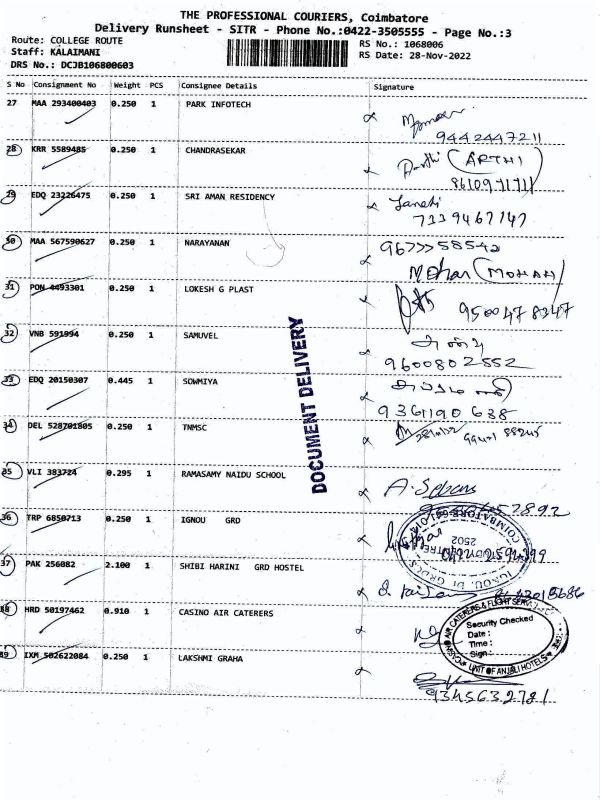 THE PROFESSIONAL COURIERS, Coimbatore
Delivery Runsheet - SITR - Phone No.:0422-3505555 - Page No.:3
Route: COLLEGE ROUTE RS No.: 1068006
Staff: KALAIMANI RS Date: 28-Nov-2022
DRS No.: DCJB106800603
S No Consignment No Weight PCS Consignee Details Signature
27 MAA 293400403 0.250 1 PARK INFOTECH
9442447211
28 KRR 5589485 0.250 1 CHANDRASEKAR
(ARTHI)
29 EDQ 23226475 0.250 1 SRI AMAN RESIDENCY Janaki
7339467147
30 MAA 567590627 0.250 1 NARAYANAN
Mohan (MOHAN)
31 PON 4493301 0.250 1 LOKESH G PLAST
32 VNB 591994 0.250 1 SAMUVEL
9600802552
33 EDQ 20150307 0.445 1 SOWMIYA
9361190638
34 DEL 528701805 0.250 1 TNMSC
DOCUMENT DELIVERY
35 VLI 383724 0.295 1 RAMASAMY NAIDU SCHOOL
36 TRP 6850713 0.250 1 IGNOU GRD
2502
37 PAK 256082 2.100 1 SHIBI HARINI GRD HOSTEL
38 HRD 50197462 0.910 1 CASINO AIR CATERERS
Security Checked
Date :
Time :
Sign :
UNIT OF ANJALI HOTELS
39 IXM 502622084 0.250 1 LAKSHMI GRAHA
9345632781